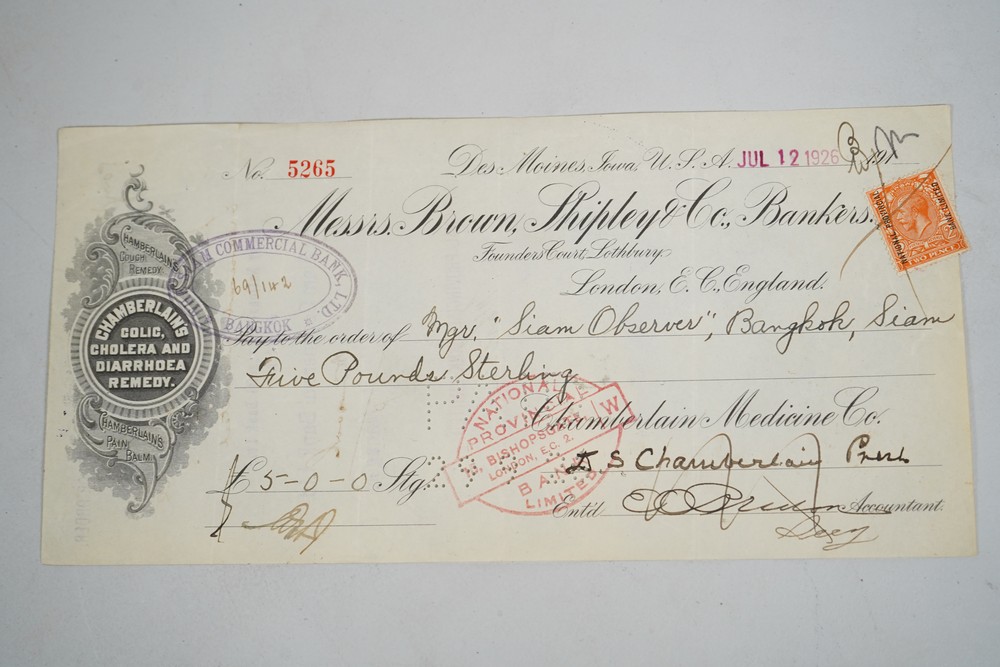 No. 5265
Des Moines, Iowa, U.S.A. JUL 12 1926 191
Messrs. Brown, Shipley & Co., Bankers.
Founders Court, Lothbury
London, E. C., England.
NATIONAL PROVINCIAL
BANK LIMITED
TWO PENCE
CHAMBERLAIN'S
COUGH
REMEDY
CHAMBERLAIN'S
COLIC,
CHOLERA AND
DIARRHOEA
REMEDY.
CHAMBERLAIN'S
PAIN
BALM
SIAM COMMERCIAL BANK, LTD.
69/142
BANGKOK
Pay to the order of Mgr. "Siam Observer", Bangkok, Siam
Five Pounds Sterling
Chamberlain Medicine Co.
NATIONAL
PROVINCIAL
BISHOPSGATE
W
LONDON, E.C. 2.
BANK
LIMITED
D S Chamberlain Prest
£ 5-0-0 Stg.
Ent'd Accountant.
Secy